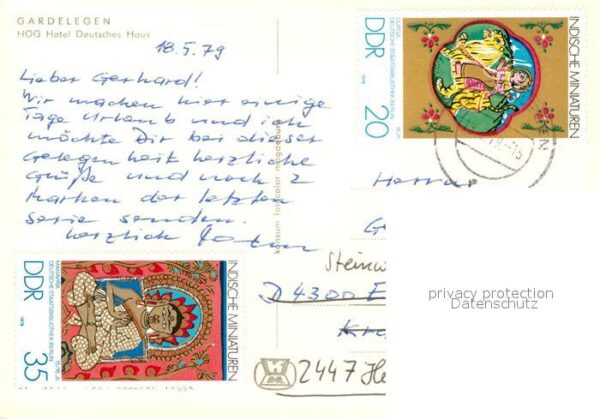 GARDELEGEN
HOG Hotel Deutsches Haus
18.5.79
Lieber Gerhard!
Wir machen hier einige
Tage Urlaub und ich
möchte Dir bei dieser
Gelegenheit herzliche
Grüße und noch 2
Marken der letzten
Serie senden.
Herzlich
konsum fotocolor magdeburg
INDISCHE MINIATUREN
DURGA
DEUTSCHE STAATSBIBLIOTHEK BERLIN
DDR
20
1979
Herrn
G
Steinw
D 4300 E
2447 He
privacy protection
Datenschutz
INDISCHE MINIATUREN
MAHAVIRA
DEUTSCHE STAATSBIBLIOTHEK BERLIN
15./16. JH.
DDR
35
1979